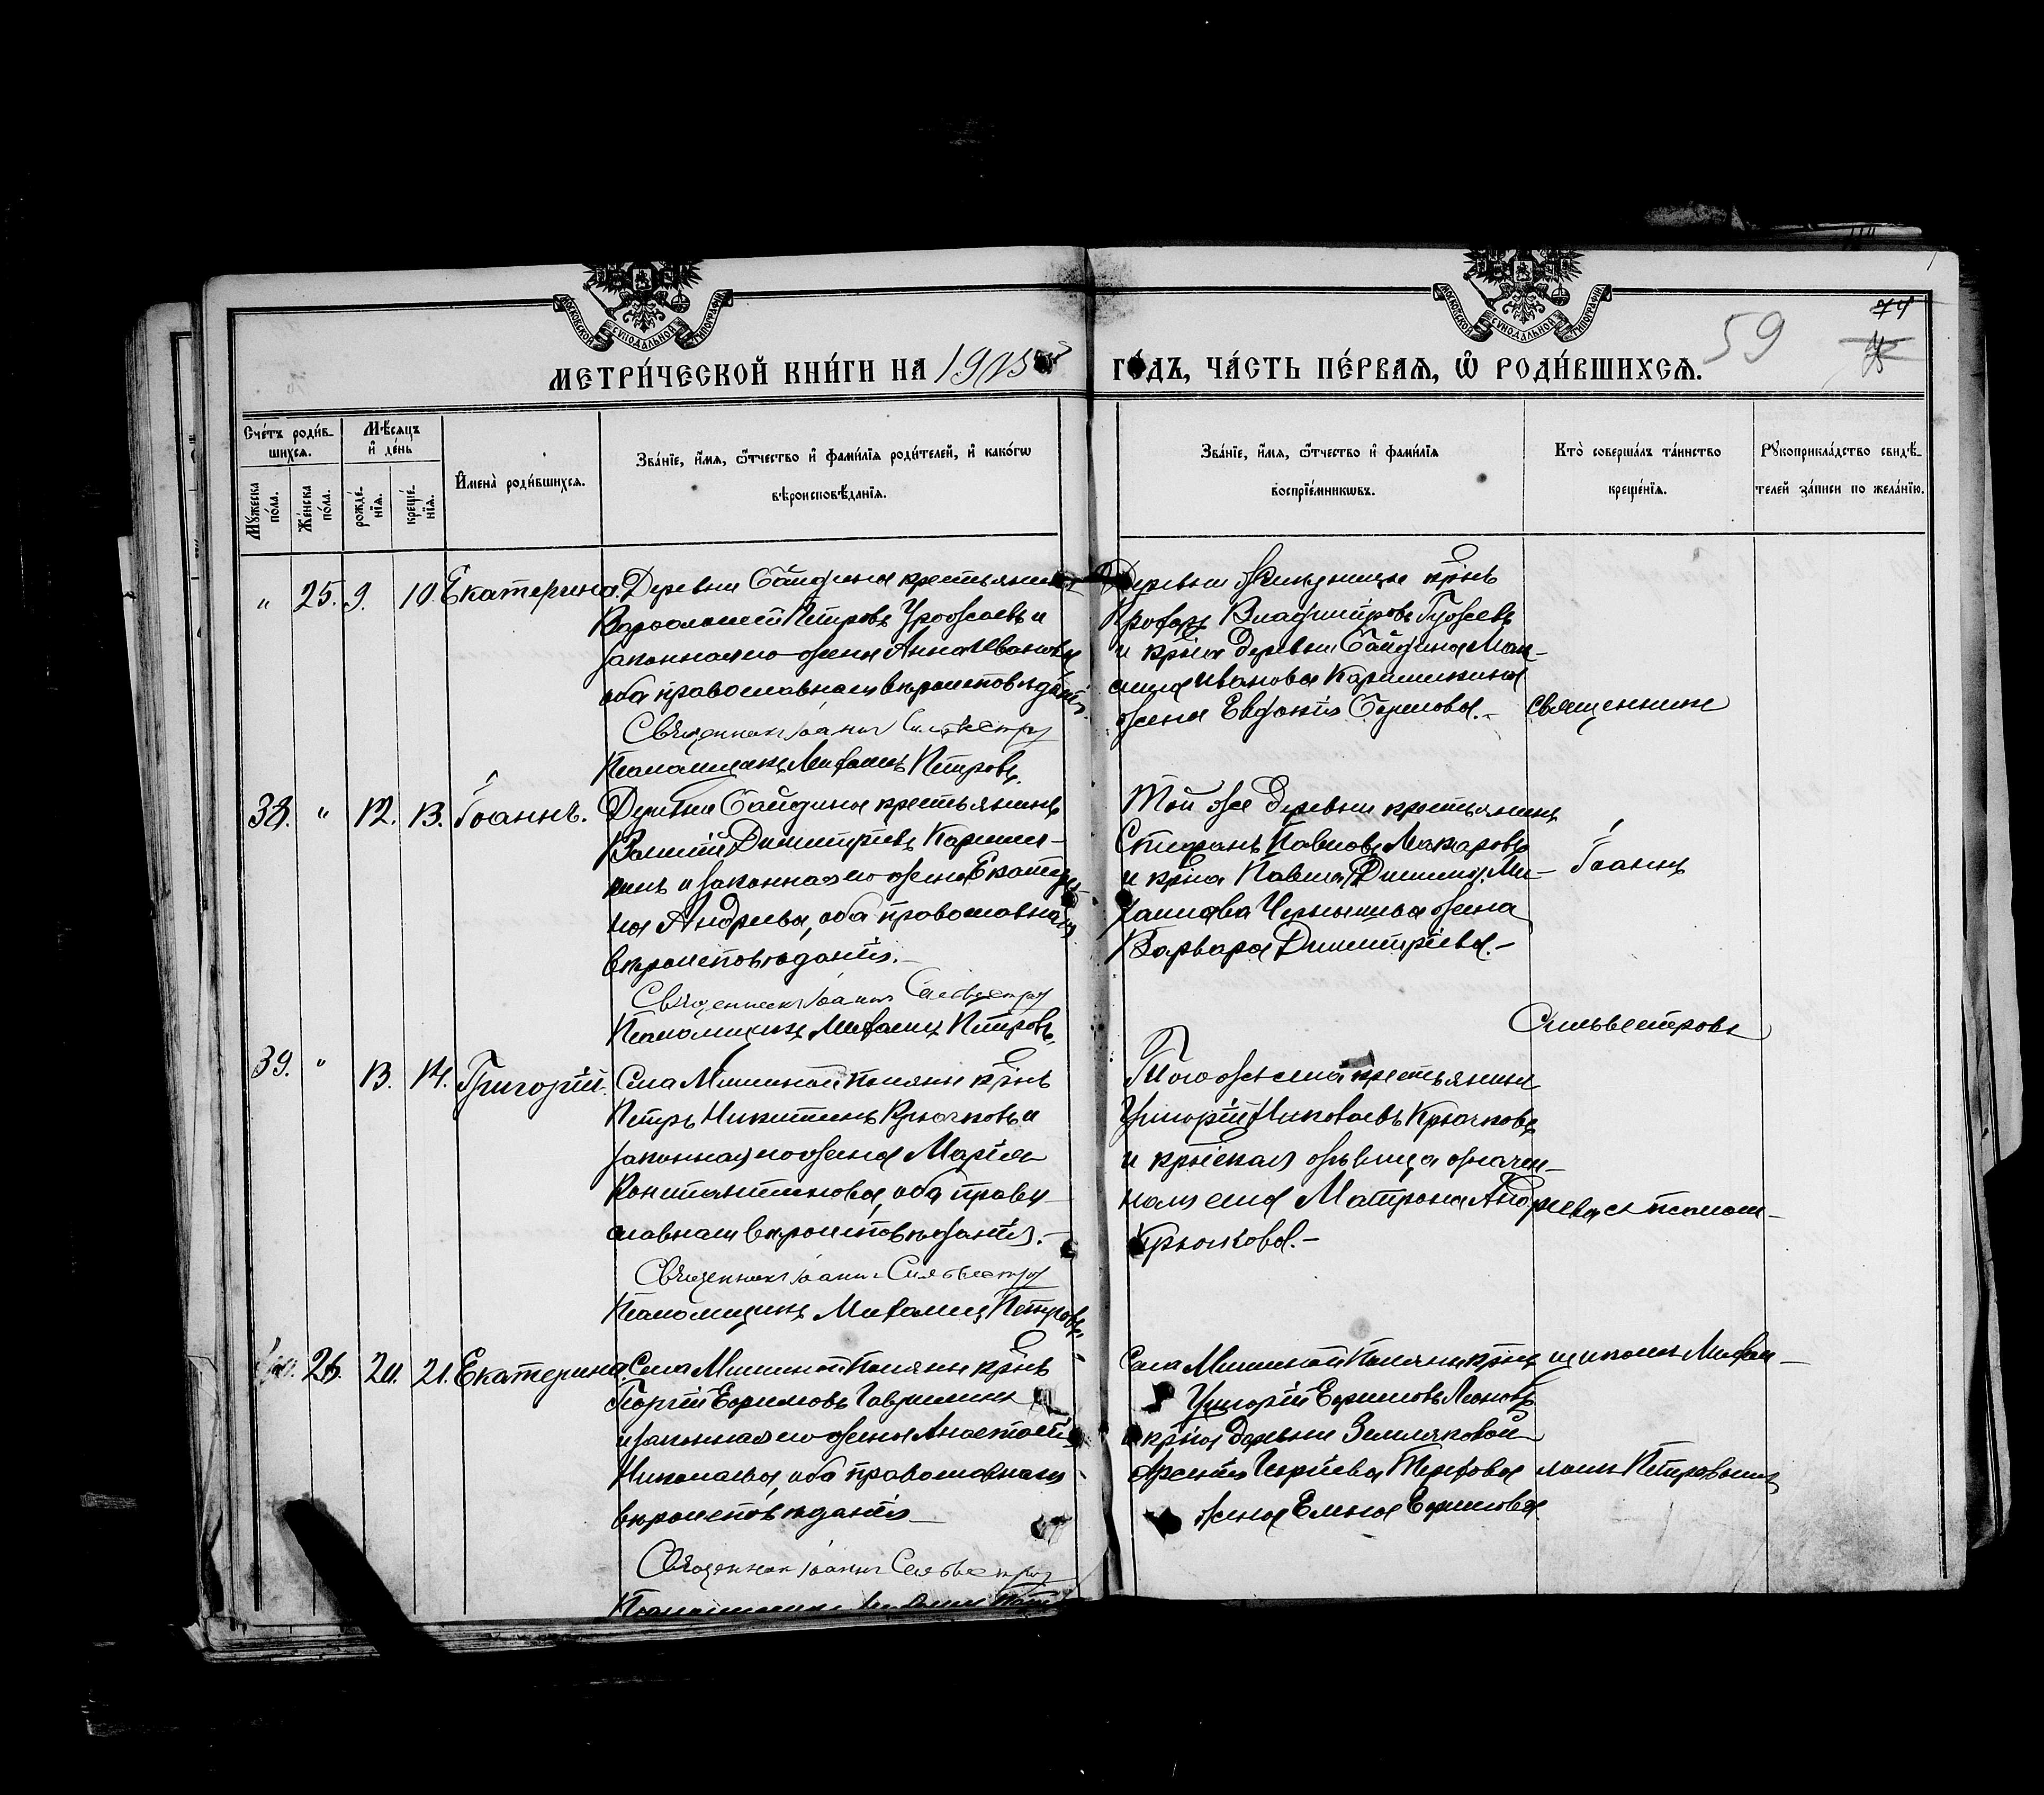 МОСКОВСКОЙ СѴНОДАЛЬНОЙ ТИПОГРАФІИ
МОСКОВСКОЙ СѴНОДАЛЬНОЙ ТИПОГРАФІИ
74
59
МЕТРИ́ЧЕСКОЙ КНИ́ГИ НА 1915 ГО́ДЪ, ЧА́СТЬ ПЕ́РВАѦ, Ѡ҆ РОДИ́ВШИХСѦ.
Счétъ роди́в-
шихсѧ.
Мꙋ́жеска по́ла.
Же́нска по́ла.
Мѣ́сѧцъ и҆ де́нь
рожде́-
нїѧ.
креще́-
нїѧ.
И҆мена̀ роди́вшихсѧ.
Зва́нїе, и҆́мѧ, ѻ҆́тчество и҆ фами́лїѧ роди́телей, и҆ како́гѡ
вѣроисповѣ́данїѧ.
Зва́нїе, и҆́мѧ, ѻ҆́тчество и҆ фами́лїѧ
воспрїе́мникѡвъ.
Кто̀ соверша́лъ та́инство
креще́нїѧ.
Рꙋкоприкла́дство свидѣ́-
телей за́писи по жела́нїю.
" 25. 9. 10. Екатерина.
Деревни Байдина крестьянинъ
Варѳоломей Петровъ и
законная его жена Анна Иванова
оба православнаго вѣроисповѣданія.
Священникъ Іоаннъ Сильвестровъ
Псаломщикъ Михаилъ Петровъ.
Деревни крнъ
Владиміровъ Гужевъ
и крнка деревни Байдина Мак-
сима Иванова Каримкина
жена Евдокія
Священникъ
38. " 12. 13. Іоаннъ.
Деревни Байдина крестьянинъ
Василій Димитріевъ Карим-
кинъ и законная его жена Екатери-
на Андреева, оба православнаго
вѣроисповѣданія.-
Священникъ Іоаннъ Сильвестровъ
Псаломщикъ Михаилъ Петровъ.
Той же деревни крестьянинъ
Стефанъ Павловъ Макаровъ
и крнка Павла Ми-
хаилова Чернышева жена
Варвара Димитріева.-
Іоаннъ
Сильвестровъ
39. " 13. 14. Григорій.
Села Мишиной Поляны крнъ
Петръ Никитинъ Крючковъ и
законная его жена Марія
Константинова, оба право-
славнаго вѣроисповѣданія.-
Священникъ Іоаннъ Сильвестровъ
Псаломщикъ Михаилъ Петровъ.
Того же села крестьянинъ
Григорій Николаевъ Крючковъ
и крнская дѣвица означен-
наго села Матрона Андреева
Крючкова.-
съ псалом-
26. 20. 21. Екатерина.
Села Мишиной Поляны крнъ
Георгій Ефимовъ Гаврилинъ
и законная его жена Анастасія
Николаева, оба православнаго
вѣроисповѣданія
Священникъ Іоаннъ Сильвестровъ
Псаломщикъ Михаилъ
Села Мишиной Поляны крнъ
Григорій Ефимовъ Леоновъ
и крнка деревни Земляковой
Арсенія Георгіева
жена Елена Ефимова
щикомъ Михаи-
ломъ Петровымъ